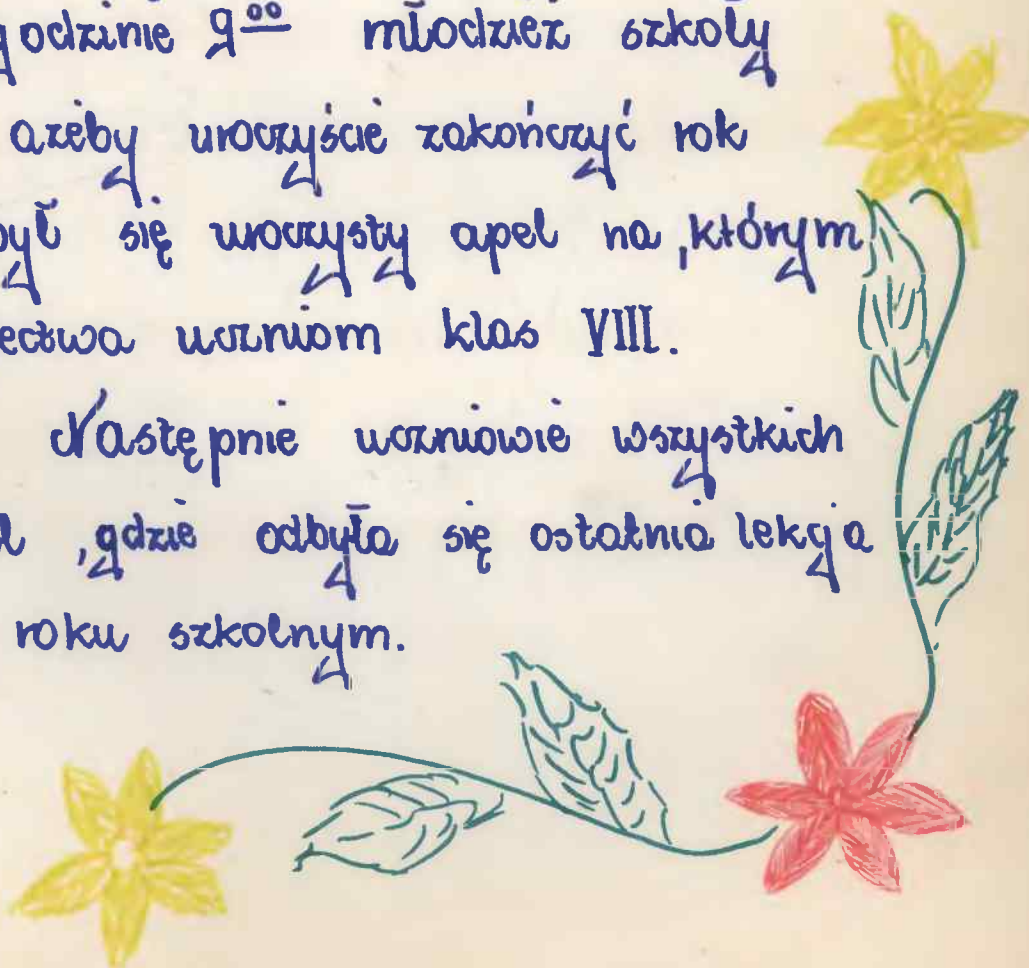 godzinie 9⁰⁰ młodzież szkoły
ażeby uroczyście zakończyć rok
był się uroczysty apel na ,którym
ectwa uczniom klas VIII.
Następnie uczniowie wszystkich
,gdzie odbyła się ostatnia lekcja
roku szkolnym.